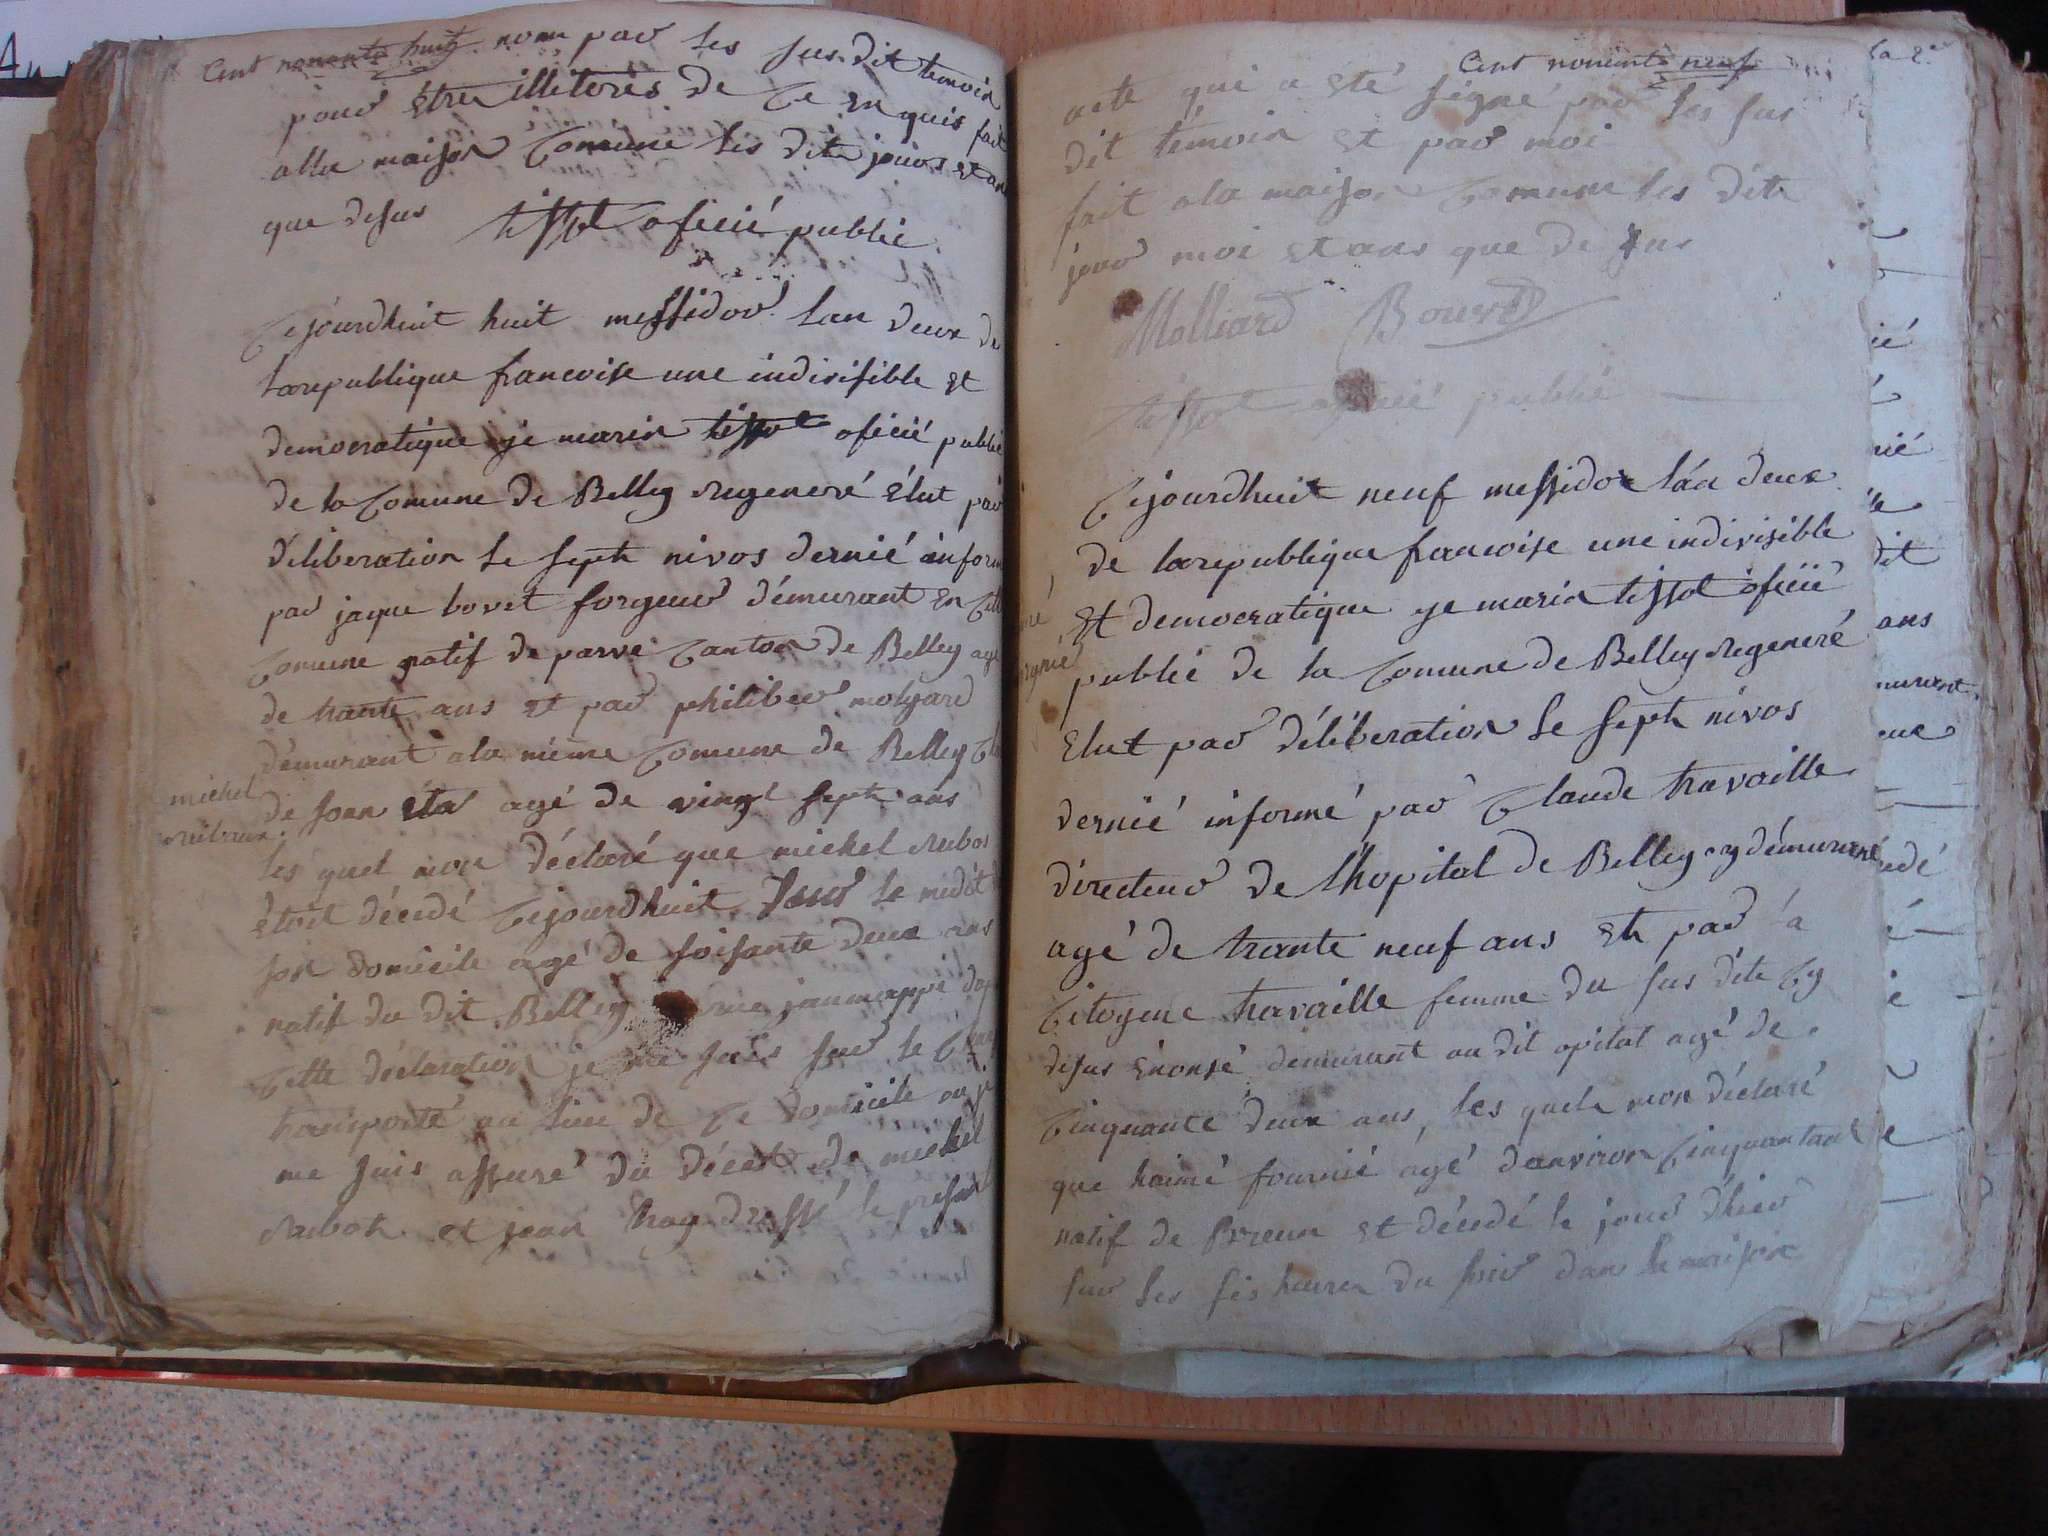 Cent nonente huit
nom par les sus dit temoin
pour être illiterés de ce en quis fait
alla maison Comune les dite jours et an
que desus tissot oficié public
Cejourdhuit huit messidor lan deux de
larepublique francoise une indivisible et
democratique je marin tissot oficié public
de la Comune de Belley Regeneré Elut par
déliberation le sept nivos dernié inform
par jaque bovet forgeur démurant en
Comune natif de parve Canton de Belley agé
de trante ans et par philiber molyard
démurant a la mème Comune de Belley
de son éta agé de vingt sept ans
michel
Rubaux
les quel mon déclaré que michel Rubos
étoit décedé Cejourdhuit sur le midit
son domicile agé de soisante deux ans
natif du dit Belley rue janmappe
Cette déclaration je me suis sur le
transporté au lieu de Ce domicile ou je
me suis assuré du décet de michel
Rubot et jean nay dressé le present
Cent nonente neuf
acte qui a été signé par les sus
dit témoin et par moi
fait a la maison Comune les dite
jour moi et ans que de sus
Molliard Bouvet
tissot oficié public
Cejourdhuit neuf messidor lan deux
de larepublique francoise une indivisible
et democratique je marin tissot oficié
public de la Comune de Belley Regeneré
Elut par déliberation le sept nivos
dernié informé par Claude travaille
directeur de lhopital de Belley y démurant
agé de trante neuf ans et par la
Citoyene travaille femme du sus dite Cy
desus énonsé demurant au dit opital agé de
Cinquante deux ans, les quels mon déclaré
que haimé fournié agé danviron Cinquantant
natif de Brenn et décedé le jour dhier
sur les sis heures du soir dans la maison
ans
murant